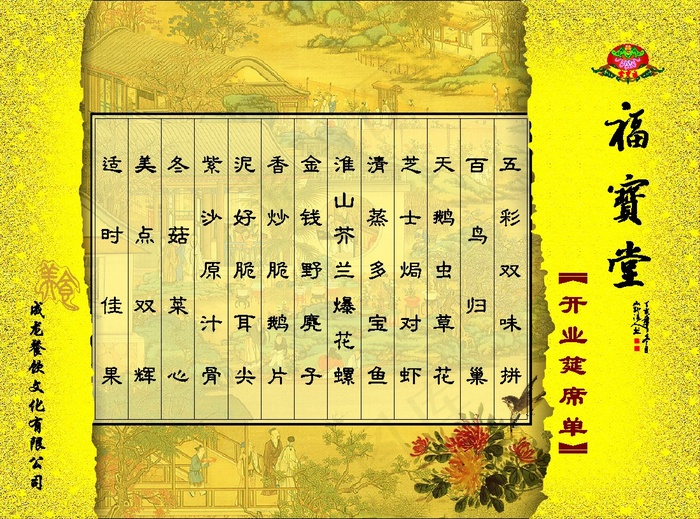 福寳堂
【开业筵席单】
五彩双味拼
百鸟归巢
天鹅虫草花
芝士焗对虾
清蒸多宝鱼
淮山芥兰爆花螺
金钱野麂子
香炒脆鹅片
泥好脆耳尖
紫沙原汁骨
冬菇菜心
美点双辉
适时佳果
美食
成龙餐饮文化有限公司